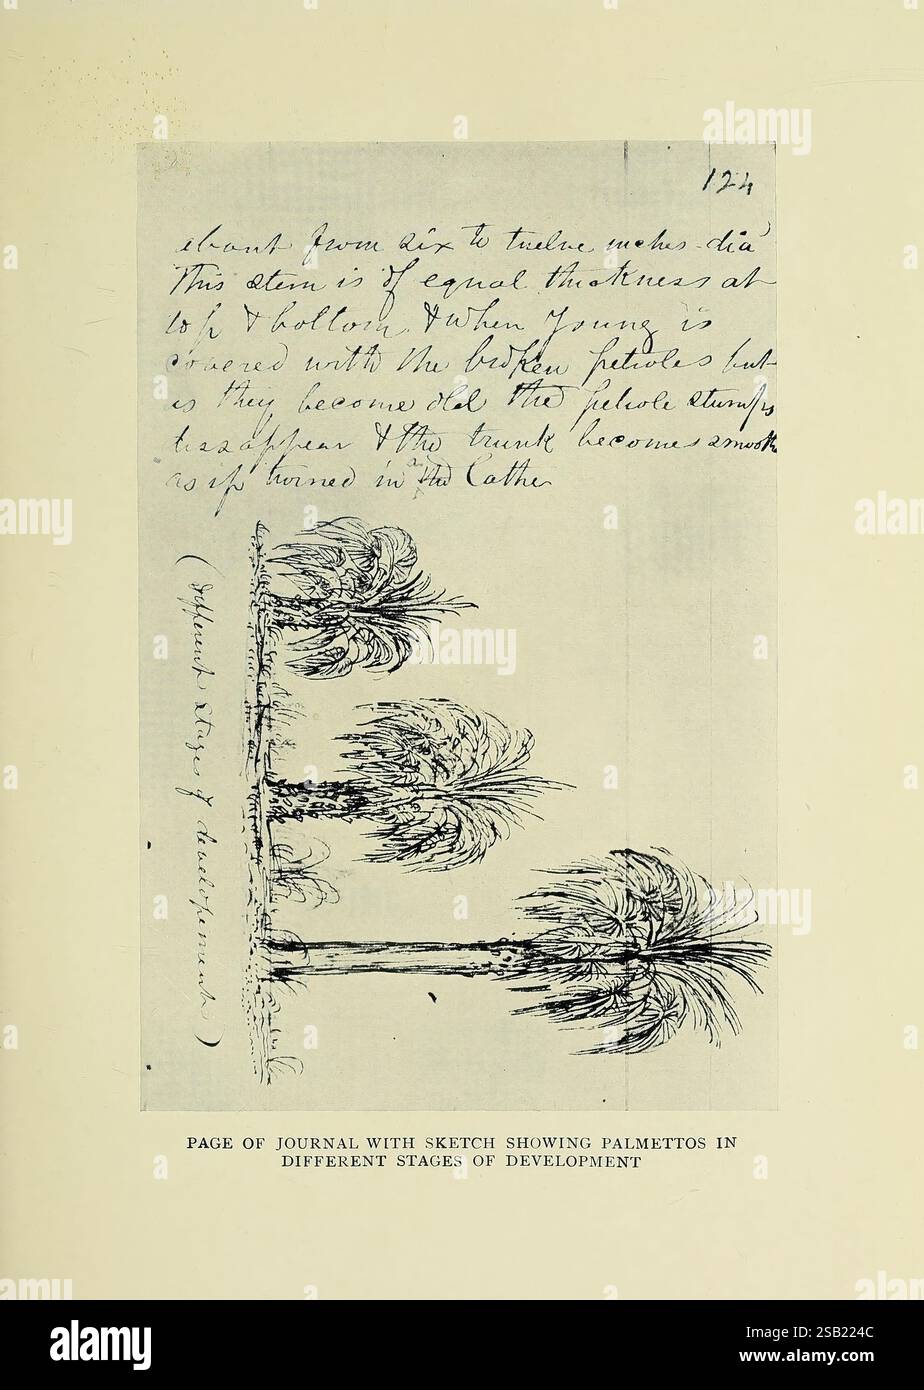 124
about from six to twelve inches dia
This stem is of equal thickness at
top & bottom, & when young is
covered with the broken petioles but
as they become old the petiole stumps
dissappear & the trunk becomes smooth
as if turned in a the Lathe
(different stages of developement)
PAGE OF JOURNAL WITH SKETCH SHOWING PALMETTOS IN
DIFFERENT STAGES OF DEVELOPMENT
alamy
Image ID: 2SB224C
www.alamy.com